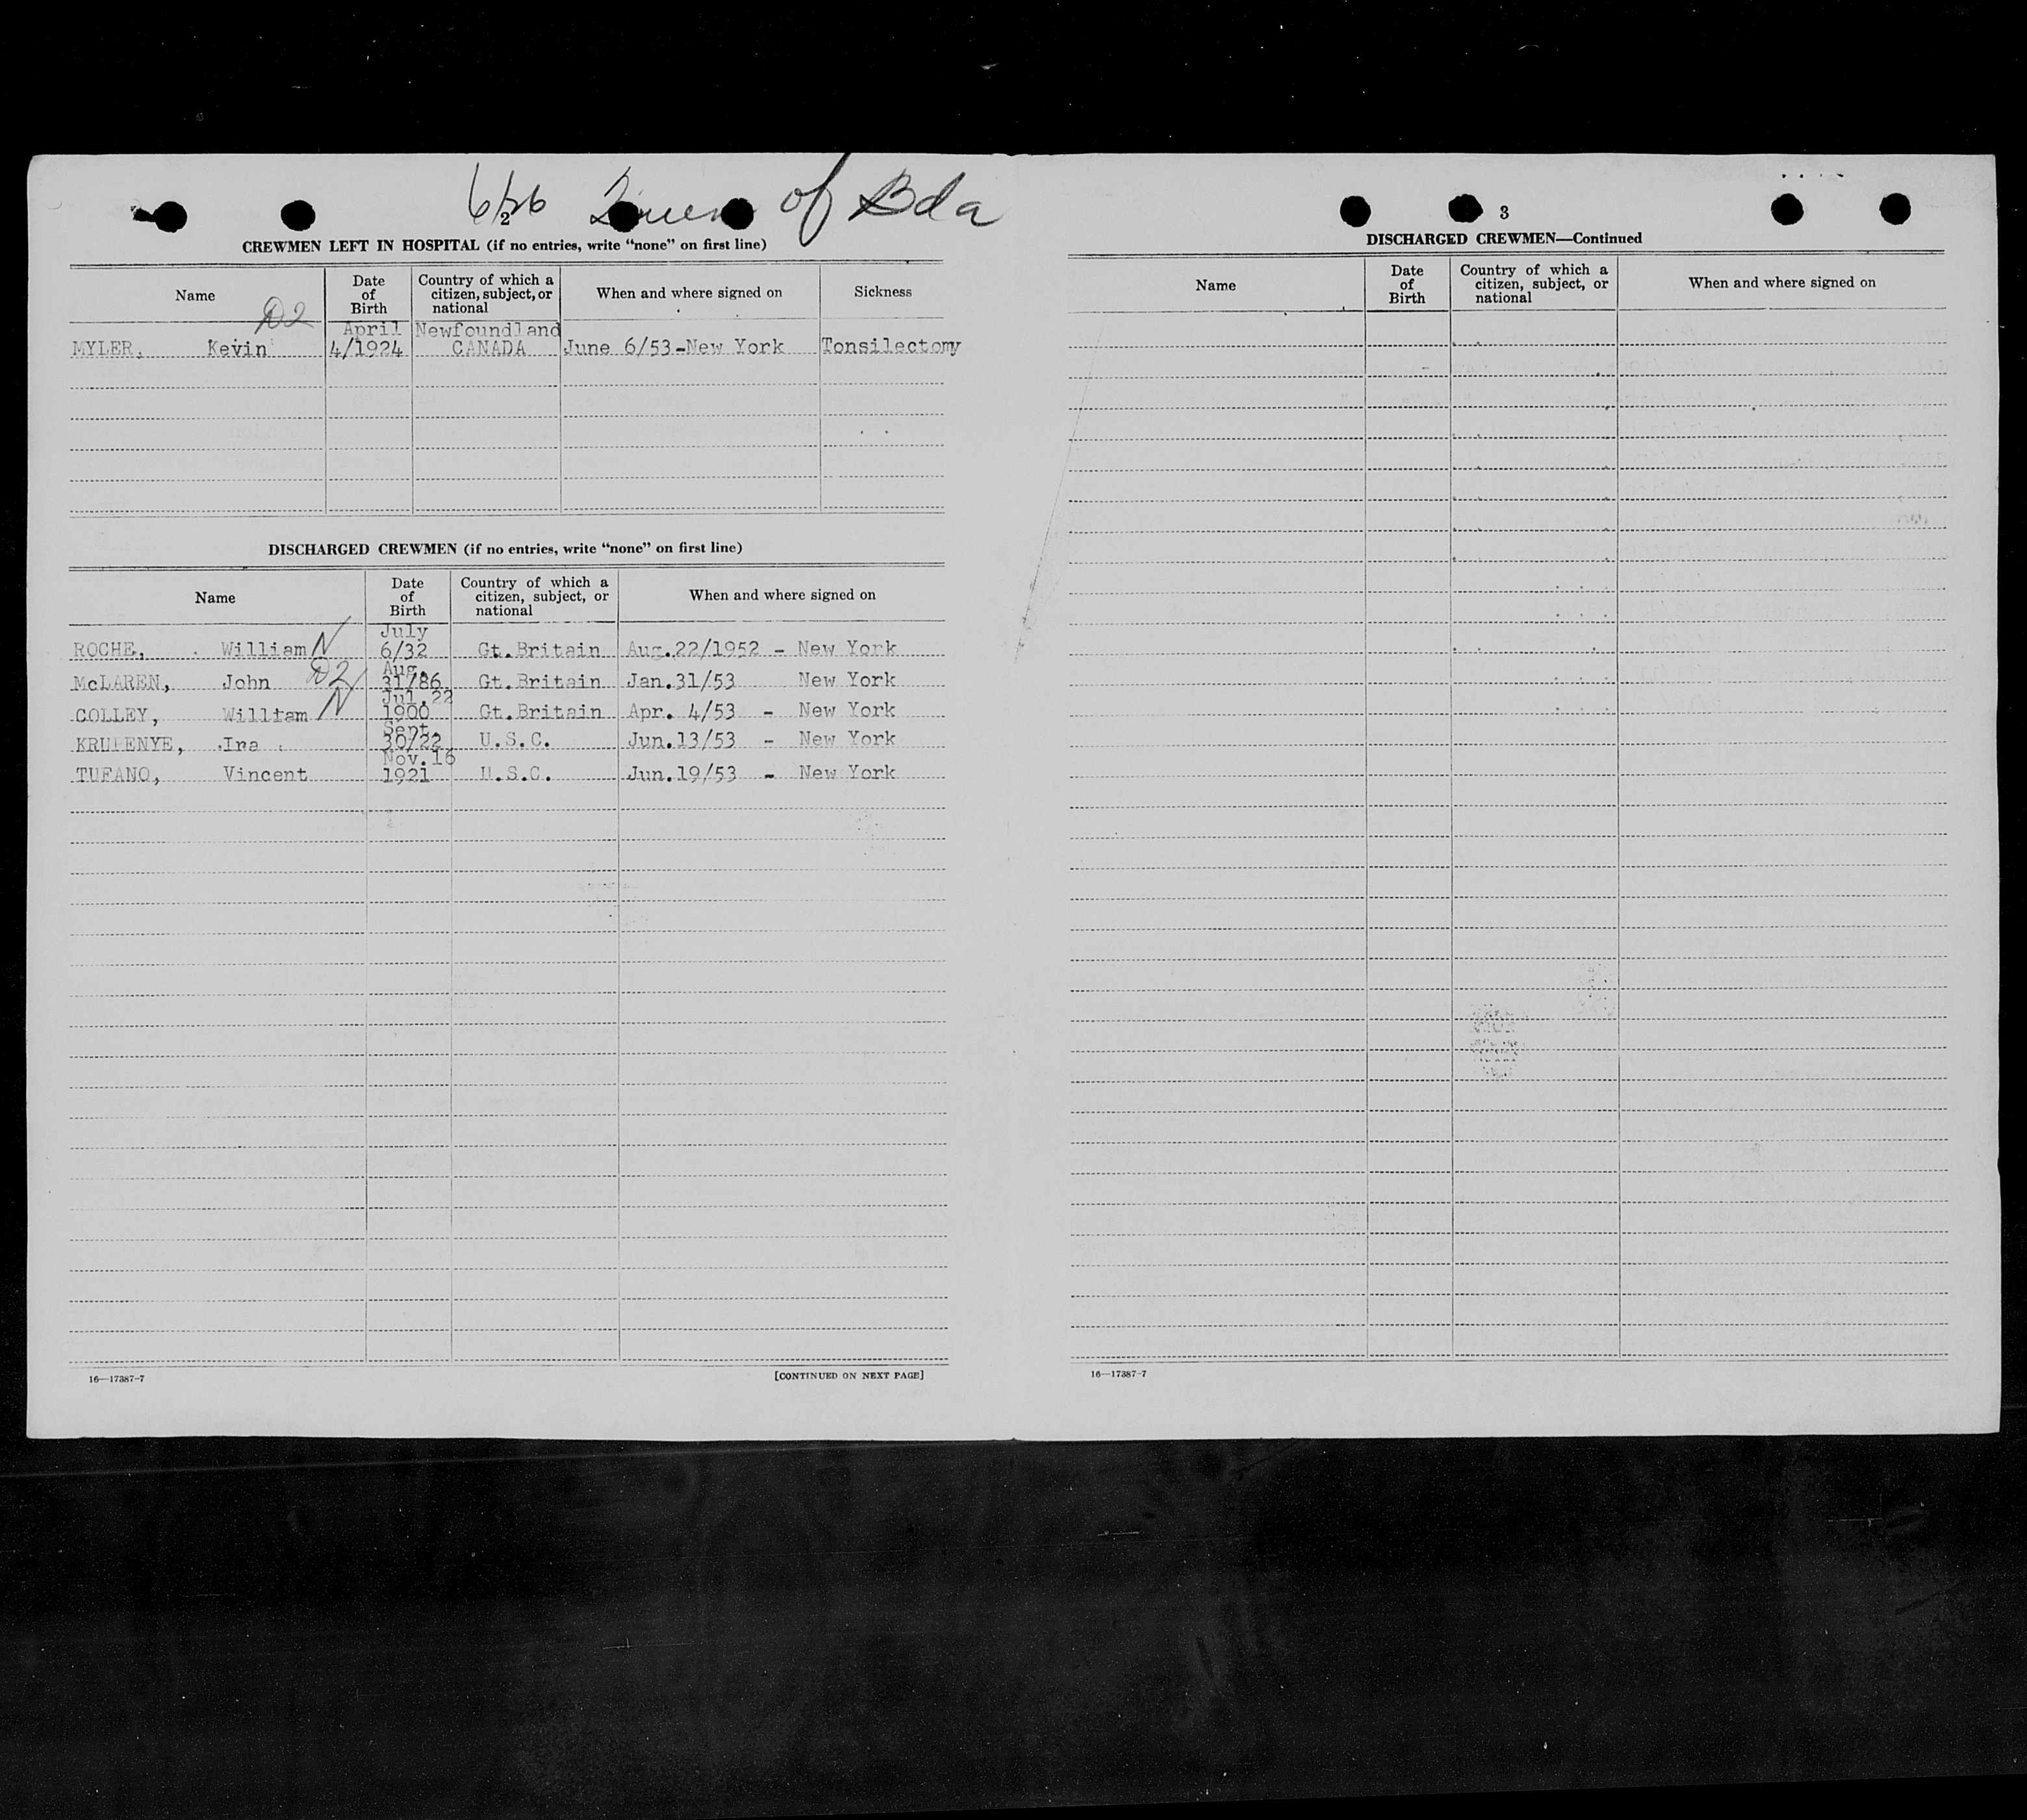 6/26 Queen of Bda
2
CREWMEN LEFT IN HOSPITAL (if no entries, write “none” on first line)
Name Date of Birth Country of which a citizen, subject, or national When and where signed on Sickness
D2
April Newfoundland
MYLER, Kevin 4/1924 CANADA June 6/53-New York Tonsilectomy
DISCHARGED CREWMEN (if no entries, write “none” on first line)
Name Date of Birth Country of which a citizen, subject, or national When and where signed on
July
ROCHE, William N 6/32 Gt.Britain Aug.22/1952 - New York
Aug.
McLAREN, John D2 31/86 Gt.Britain Jan.31/53 New York
Jul.22
COLLEY, William N 1900 Gt.Britain Apr. 4/53 - New York
Sept.
KRUPENYE, Ira 30/22 U.S.C. Jun.13/53 - New York
Nov.16
TUFANO, Vincent 1921 U.S.C. Jun.19/53 - New York
16—17387-7 [CONTINUED ON NEXT PAGE]
3
DISCHARGED CREWMEN—Continued
Name Date of Birth Country of which a citizen, subject, or national When and where signed on
16—17387-7